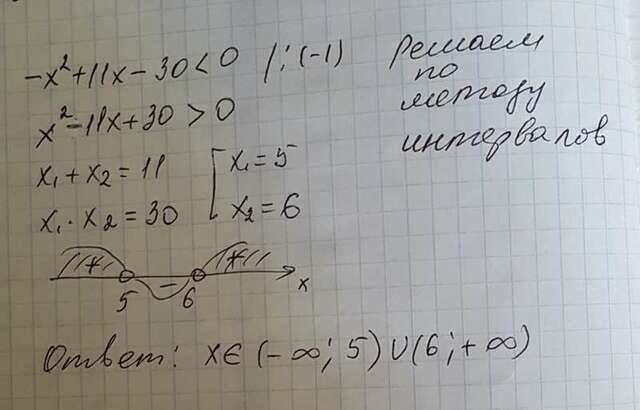 -x²+11x-30<0 /:(-1)
Решаем
по
методу
интервалов
x²-11x+30>0
x₁+x₂=11
x₁·x₂=30
x₁=5
x₂=6
+ - +
5 6 x
Ответ: x∈(-∞;5)∪(6;+∞)